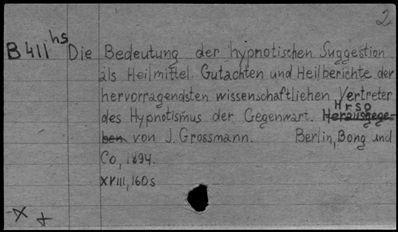 2
B411hs Die Bedeutung der hypnotischen Suggestion
als Heilmittel. Gutachten und Heilberichte der
hervorragendsten wissenschaftliehen Vertreter
des Hypnotismus der Gegenwart. Herausgege-
Hrsg
ben von J. Grossmann. Berlin, Bong und
Co, 1894.
XVIII, 160s